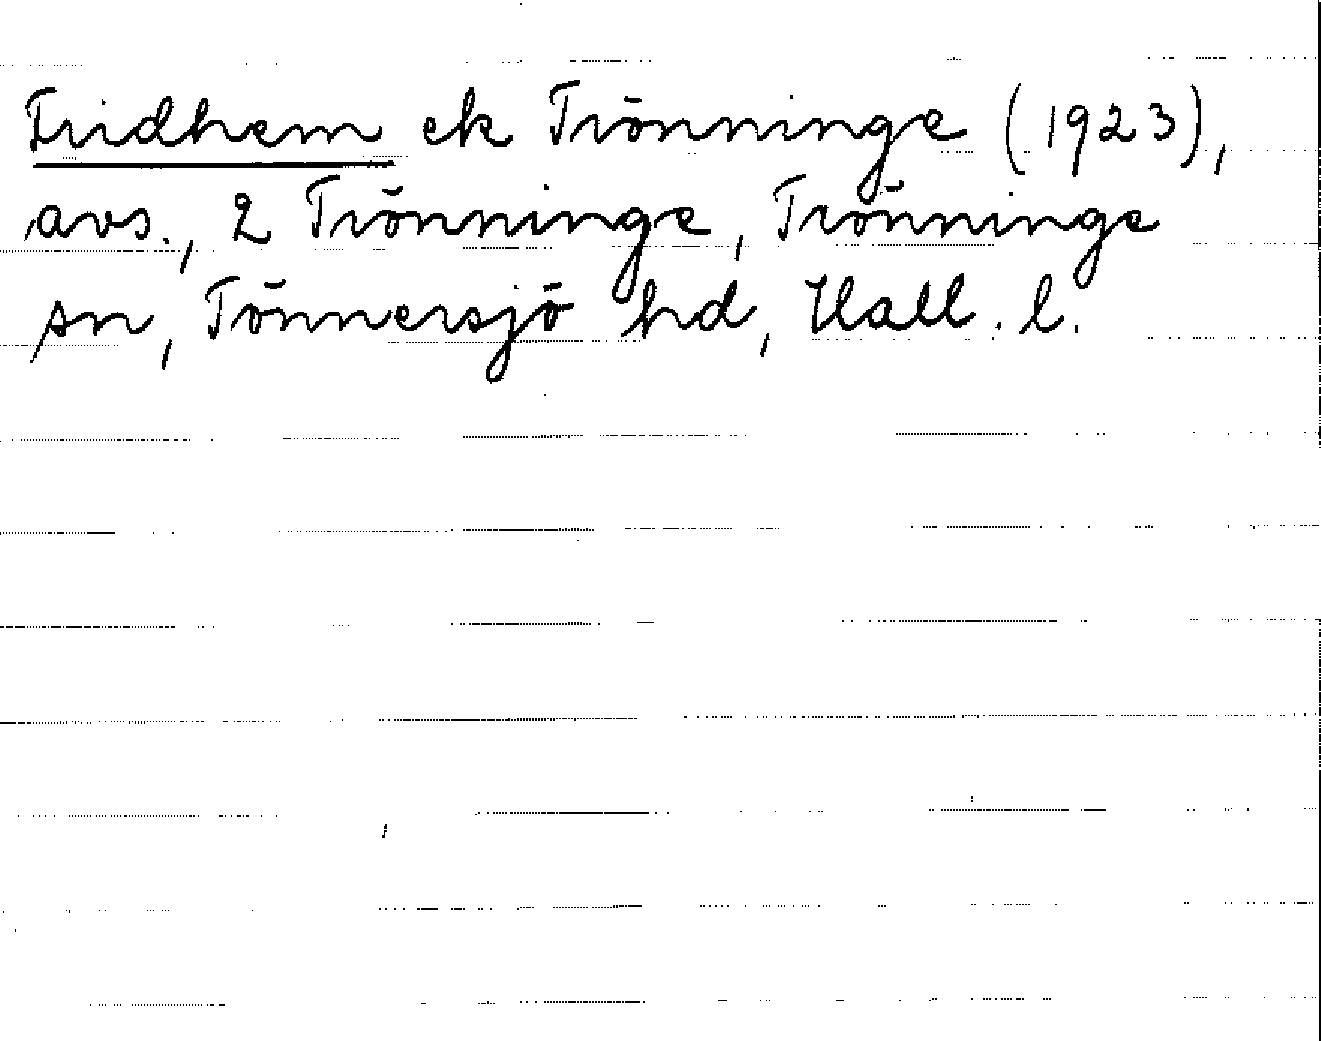 Fridhem ek Trönninge (1923),
avs., 2 Trönninge, Trönninge
sn, Tönnersjö hd, Hall. l.